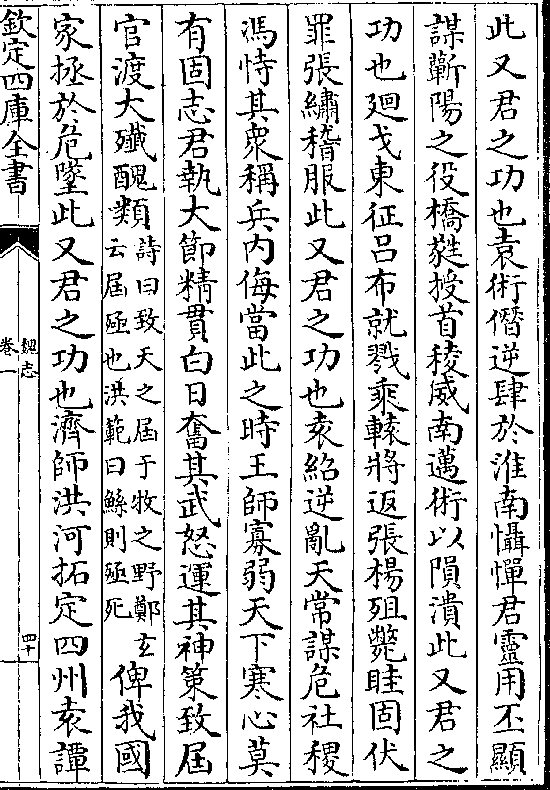 此又君之功也袁術僭逆肆於淮南懾憚君靈用丕顯
謀蘄陽之役橋蕤授首稜威南邁術以隕潰此又君之
功也廻戈東征呂布就戮乘轅將返張楊殂斃眭固伏
罪張繡稽服此又君之功也袁紹逆亂天常謀危社稷
馮恃其衆稱兵内侮當此之時王師寡弱天下寒心莫
有固志君執大節精貫白日奮其武怒運其神策致屆
官渡大殲醜類詩曰致天之屆于牧之野鄭玄
云屆殛也洪範曰鯀則殛死俾我國
家拯於危墜此又君之功也濟師洪河拓定四州袁譚
欽定四庫全書
魏志
卷一
四十